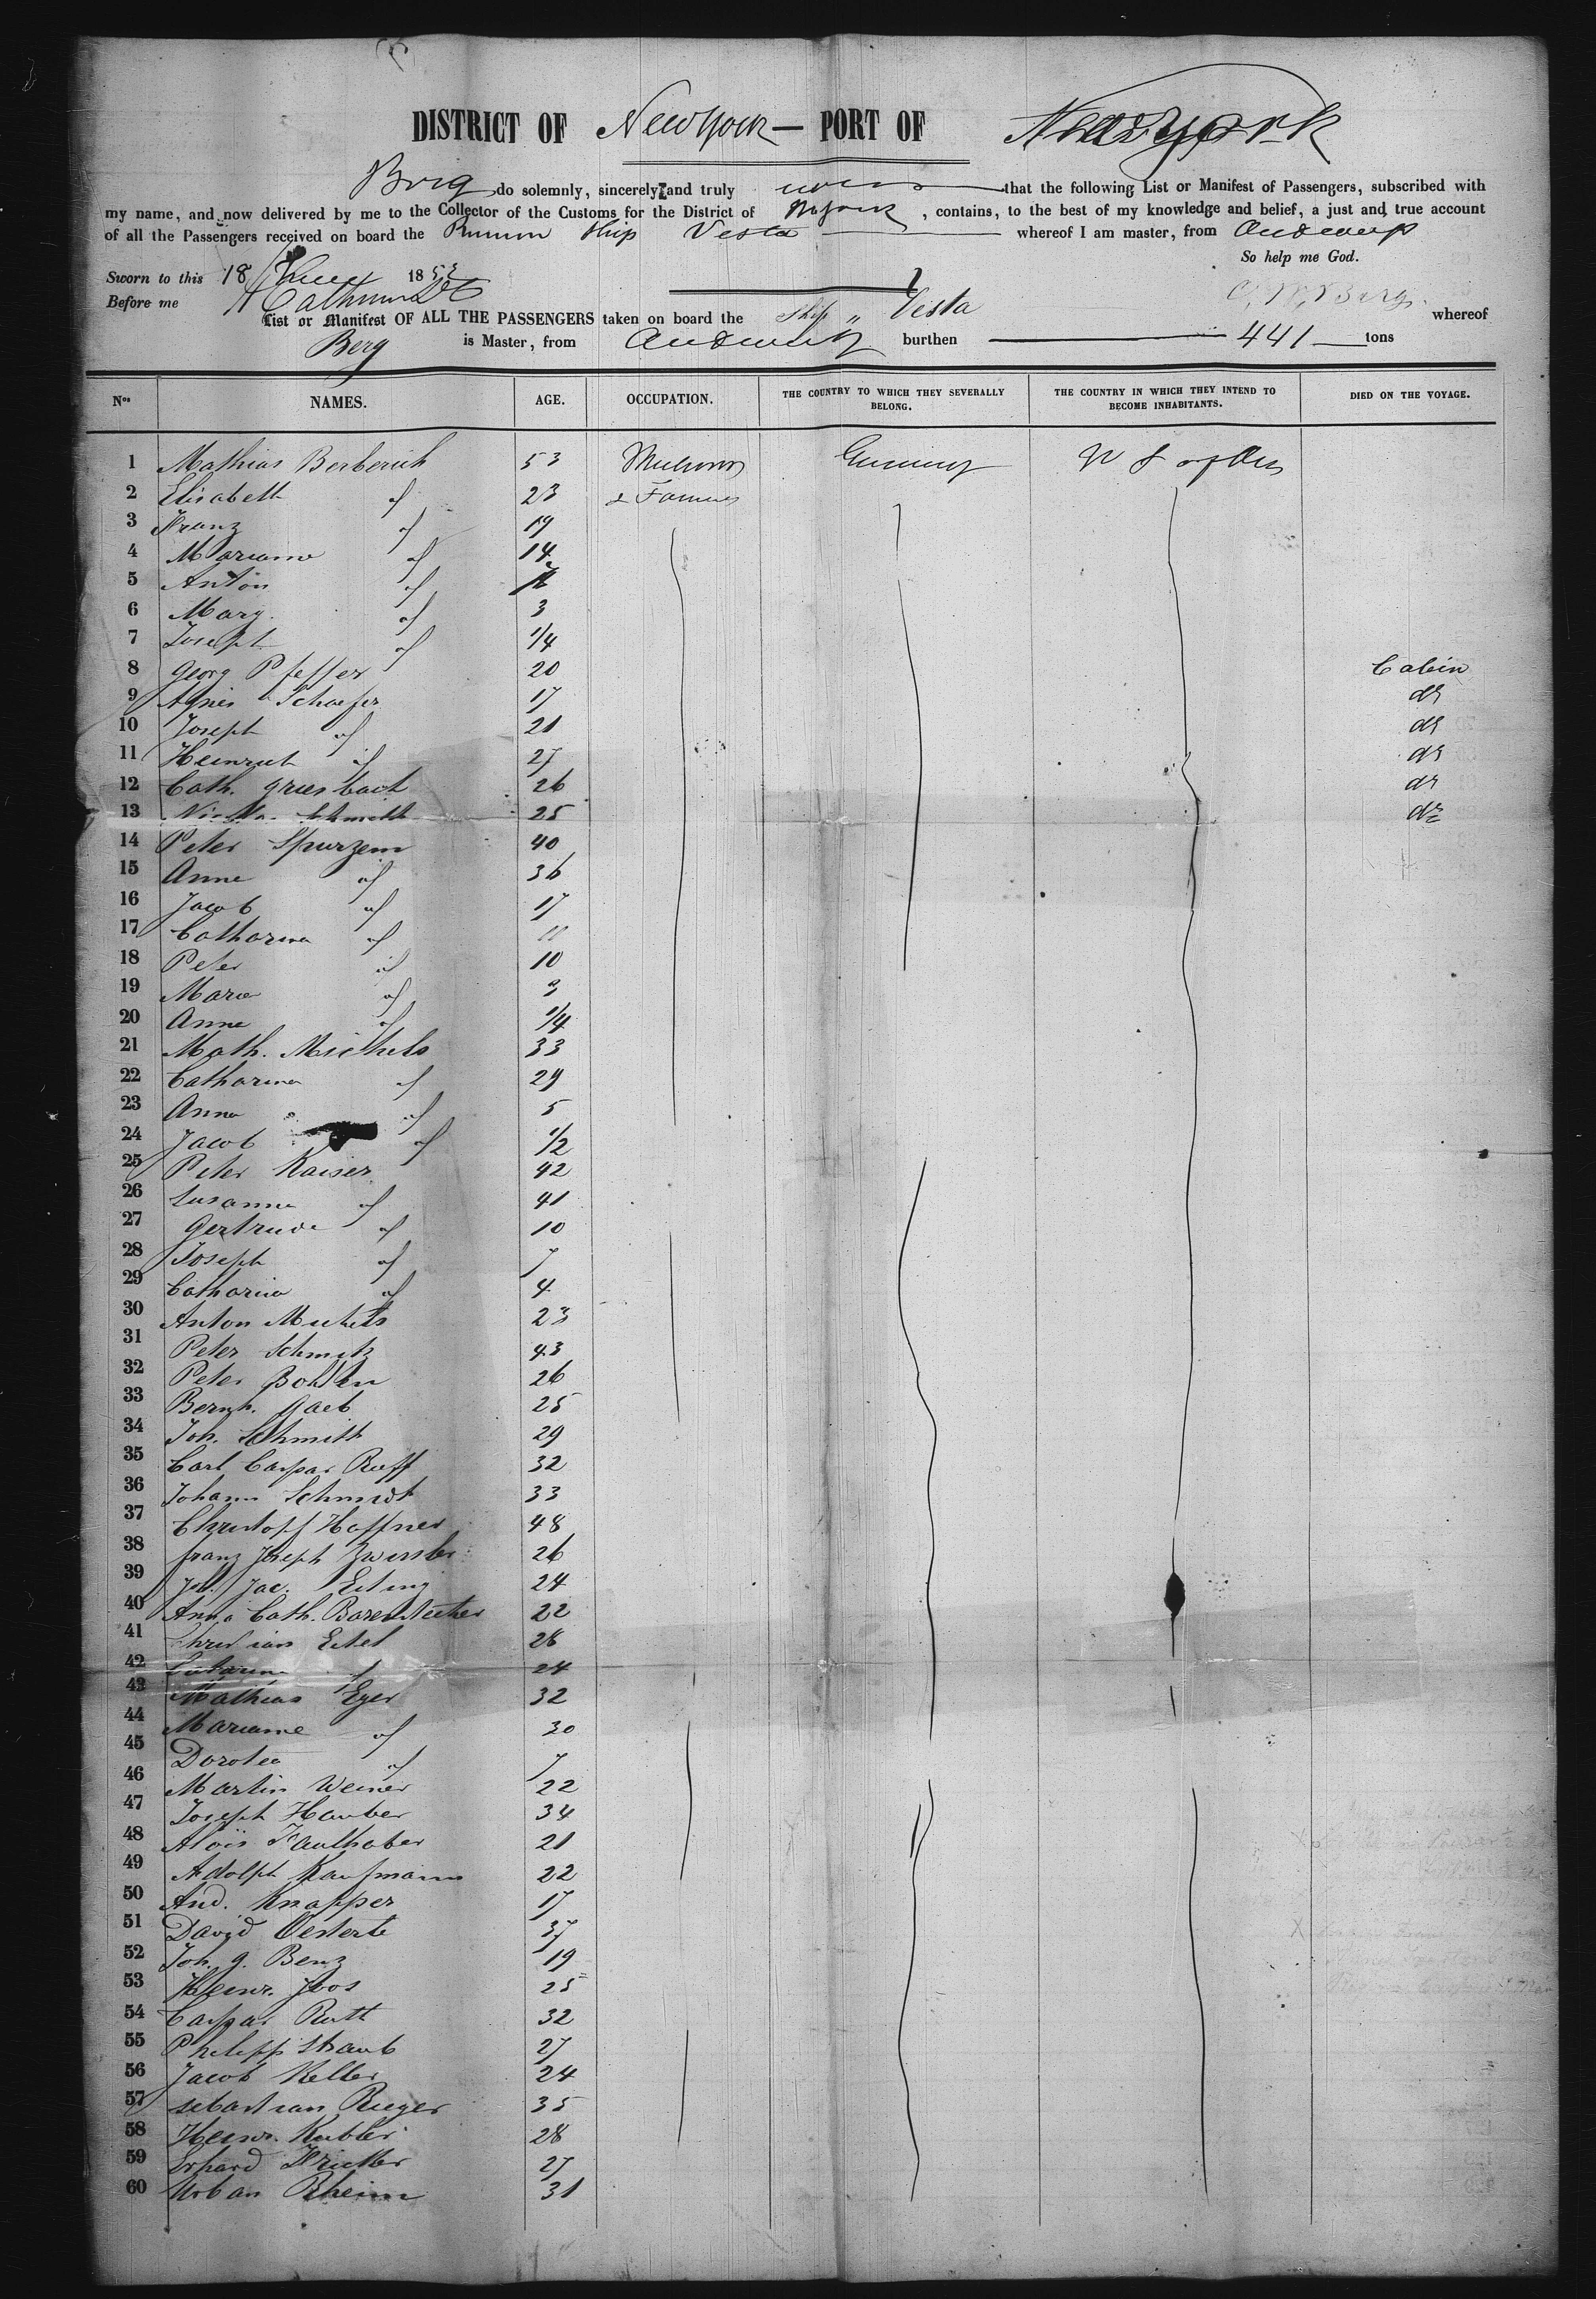 DISTRICT OF New York — PORT OF New York
Berg do solemnly, sincerely and truly that the following List or Manifest of Passengers, subscribed with
my name, and now delivered by me to the Collector of the Customs for the District of N York, contains, to the best of my knowledge and belief, a just and true account
of all the Passengers received on board the Ship Vesta whereof I am master, from Andwerp
So help me God.
Sworn to this 18 June 1853
Before me
List or Manifest OF ALL THE PASSENGERS taken on board the Ship „ Vesta whereof
Berg is Master, from burthen 441 tons
Nos NAMES. AGE. OCCUPATION. THE COUNTRY TO WHICH THEY SEVERALLY BELONG. THE COUNTRY IN WHICH THEY INTEND TO BECOME INHABITANTS. DIED ON THE VOYAGE.
1 Mathias Berberich 53 Germany
2 Elisabeth 23 & Farmers
3 Franz 19
4 Mariame 14
5 Anton
6 Marg. 3
7 Joseph 1/4
8 Georg Pfeffer 20 Cabin
9 Agnes Schaefer 17 do
10 Joseph 21 do
11 Heinrich 27 do
12 Cath. Griesbach 26 do
13 Schmidt 25 do
14 Peter Spurzem 40
15 Anne 36
16 Jacob 17
17 Catharina 11
18 Peter 10
19 Maria 3
20 Anna 1/4
21 Math. Michels 33
22 Catharina 29
23 Anna 5
24 Jacob 1/2
25 Peter Kaiser 42
26 Susanna 41
27 Gertrude 10
28 Joseph 7
29 Catharina 4
30 Anton Michels 23
31 Peter Schmitz 43
32 Peter Bohlen 26
33 Bernh. Gaeb 25
34 Joh. Schmitt 29
35 Carl Caspar Ruff 32
36 Johann Schmidt 33
37 Christoff Haffner 48
38 Franz Joseph 26
39 Joh. Jac. 24
40 Anna Cath. 22
41 Christian Eitel 28
42 Catarina 24
43 Mathias Eger 32
44 Mariame 30
45 Dorotea 7
46 Martin Weiner 22
47 Joseph Hauber 34
48 Alois Faulhaber 21
49 Adolph Kaufmann 22
50 And. Knapper 17
51 David Oesterle 37
52 Joh. G. Benz 19
53 Heinr. Joos 25
54 Caspar Ruth 32
55 Philipp Straub 27
56 Jacob Keller 24
57 Sebastian Rieger 35
58 Heinr. Kubler 28
59 Erhard 27
60 Urban Rheim 31